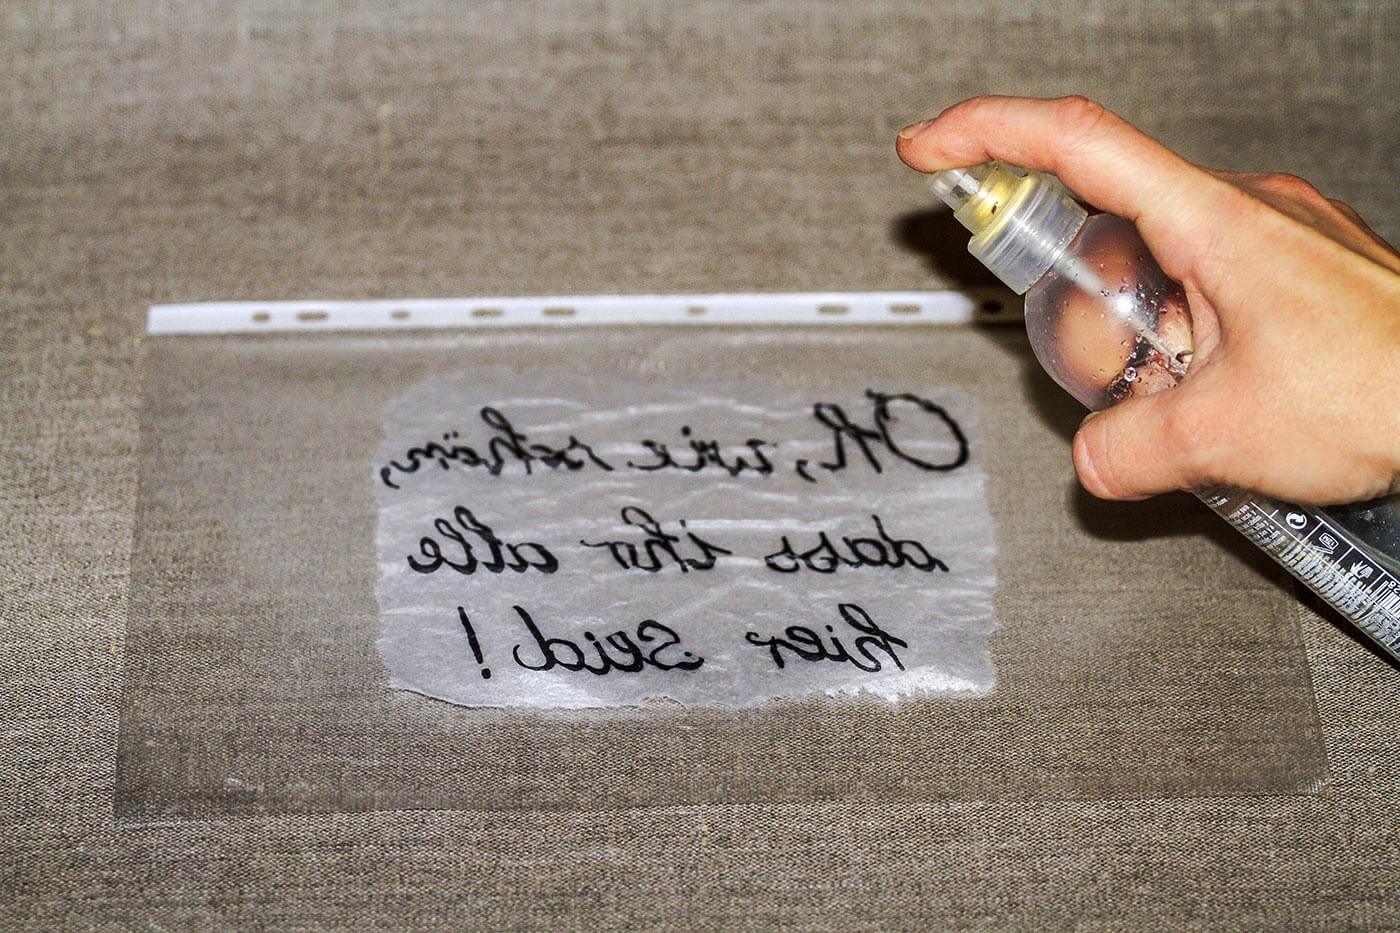 Oh, wie schön,
dass ihr alle
hier Seid!